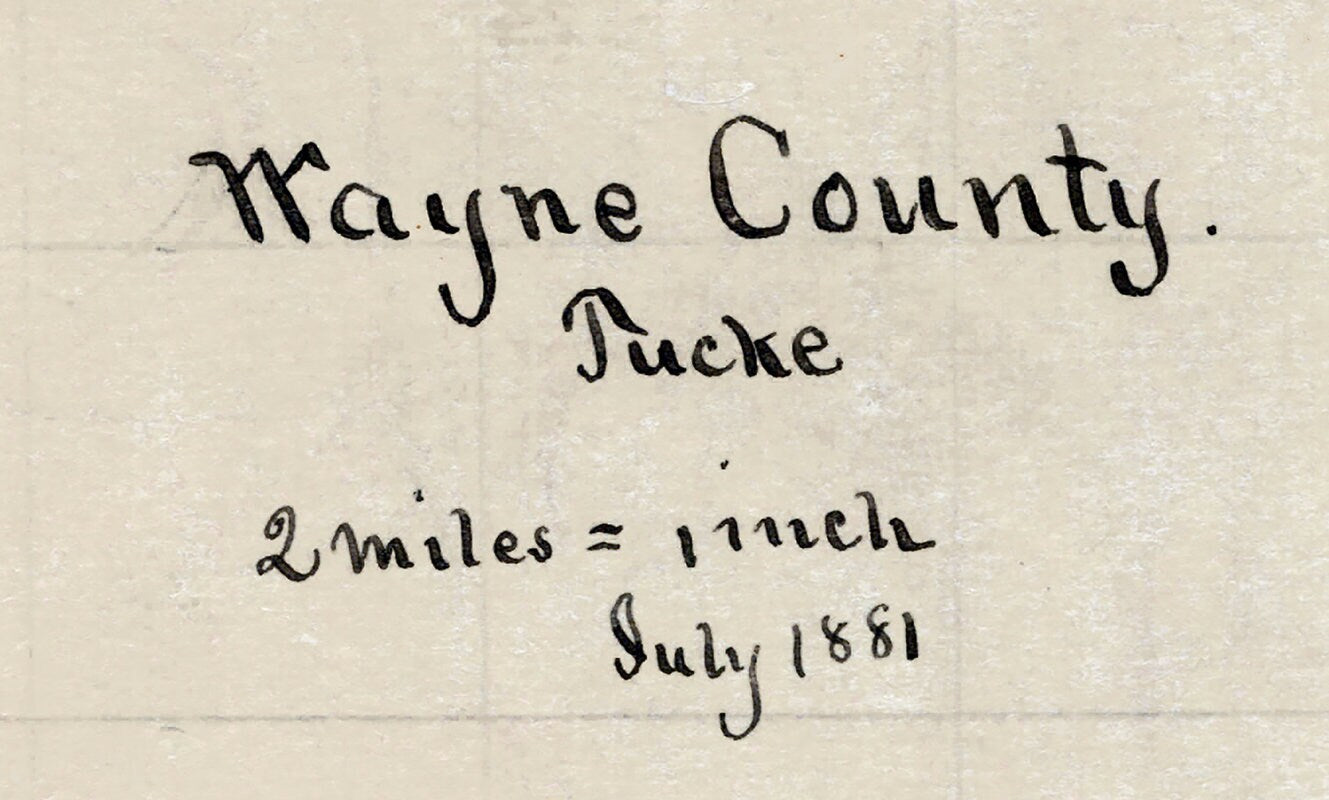 Wayne County.
Tucke
2 miles = 1 inch
July 1881